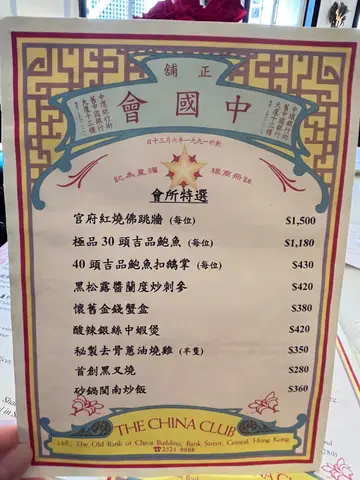 正
舖
會國中
中環銀行街
舊中國銀行
大廈十三樓
中環銀行街
舊中國銀行
大廈十三樓
日十三月六年一九九一於創
記為星耀
標商冊註
會所特選
官府紅燒佛跳牆 (每位) $1,500
極品30頭吉品鮑魚 (每位) $1,180
40頭吉品鮑魚扣鵝掌 (每位) $430
黑松露醬蘭度炒刺參 $420
懷舊金錢蟹盒 $380
酸辣銀絲中蝦煲 $420
秘製去骨蔥油燒雞 (半隻) $350
首創黑叉燒 $280
砂鍋閩南炒飯 $360
THE CHINA CLUB
13/F, The Old Bank of China Building, Bank Street, Central, Hong Kong
☎2521 8888